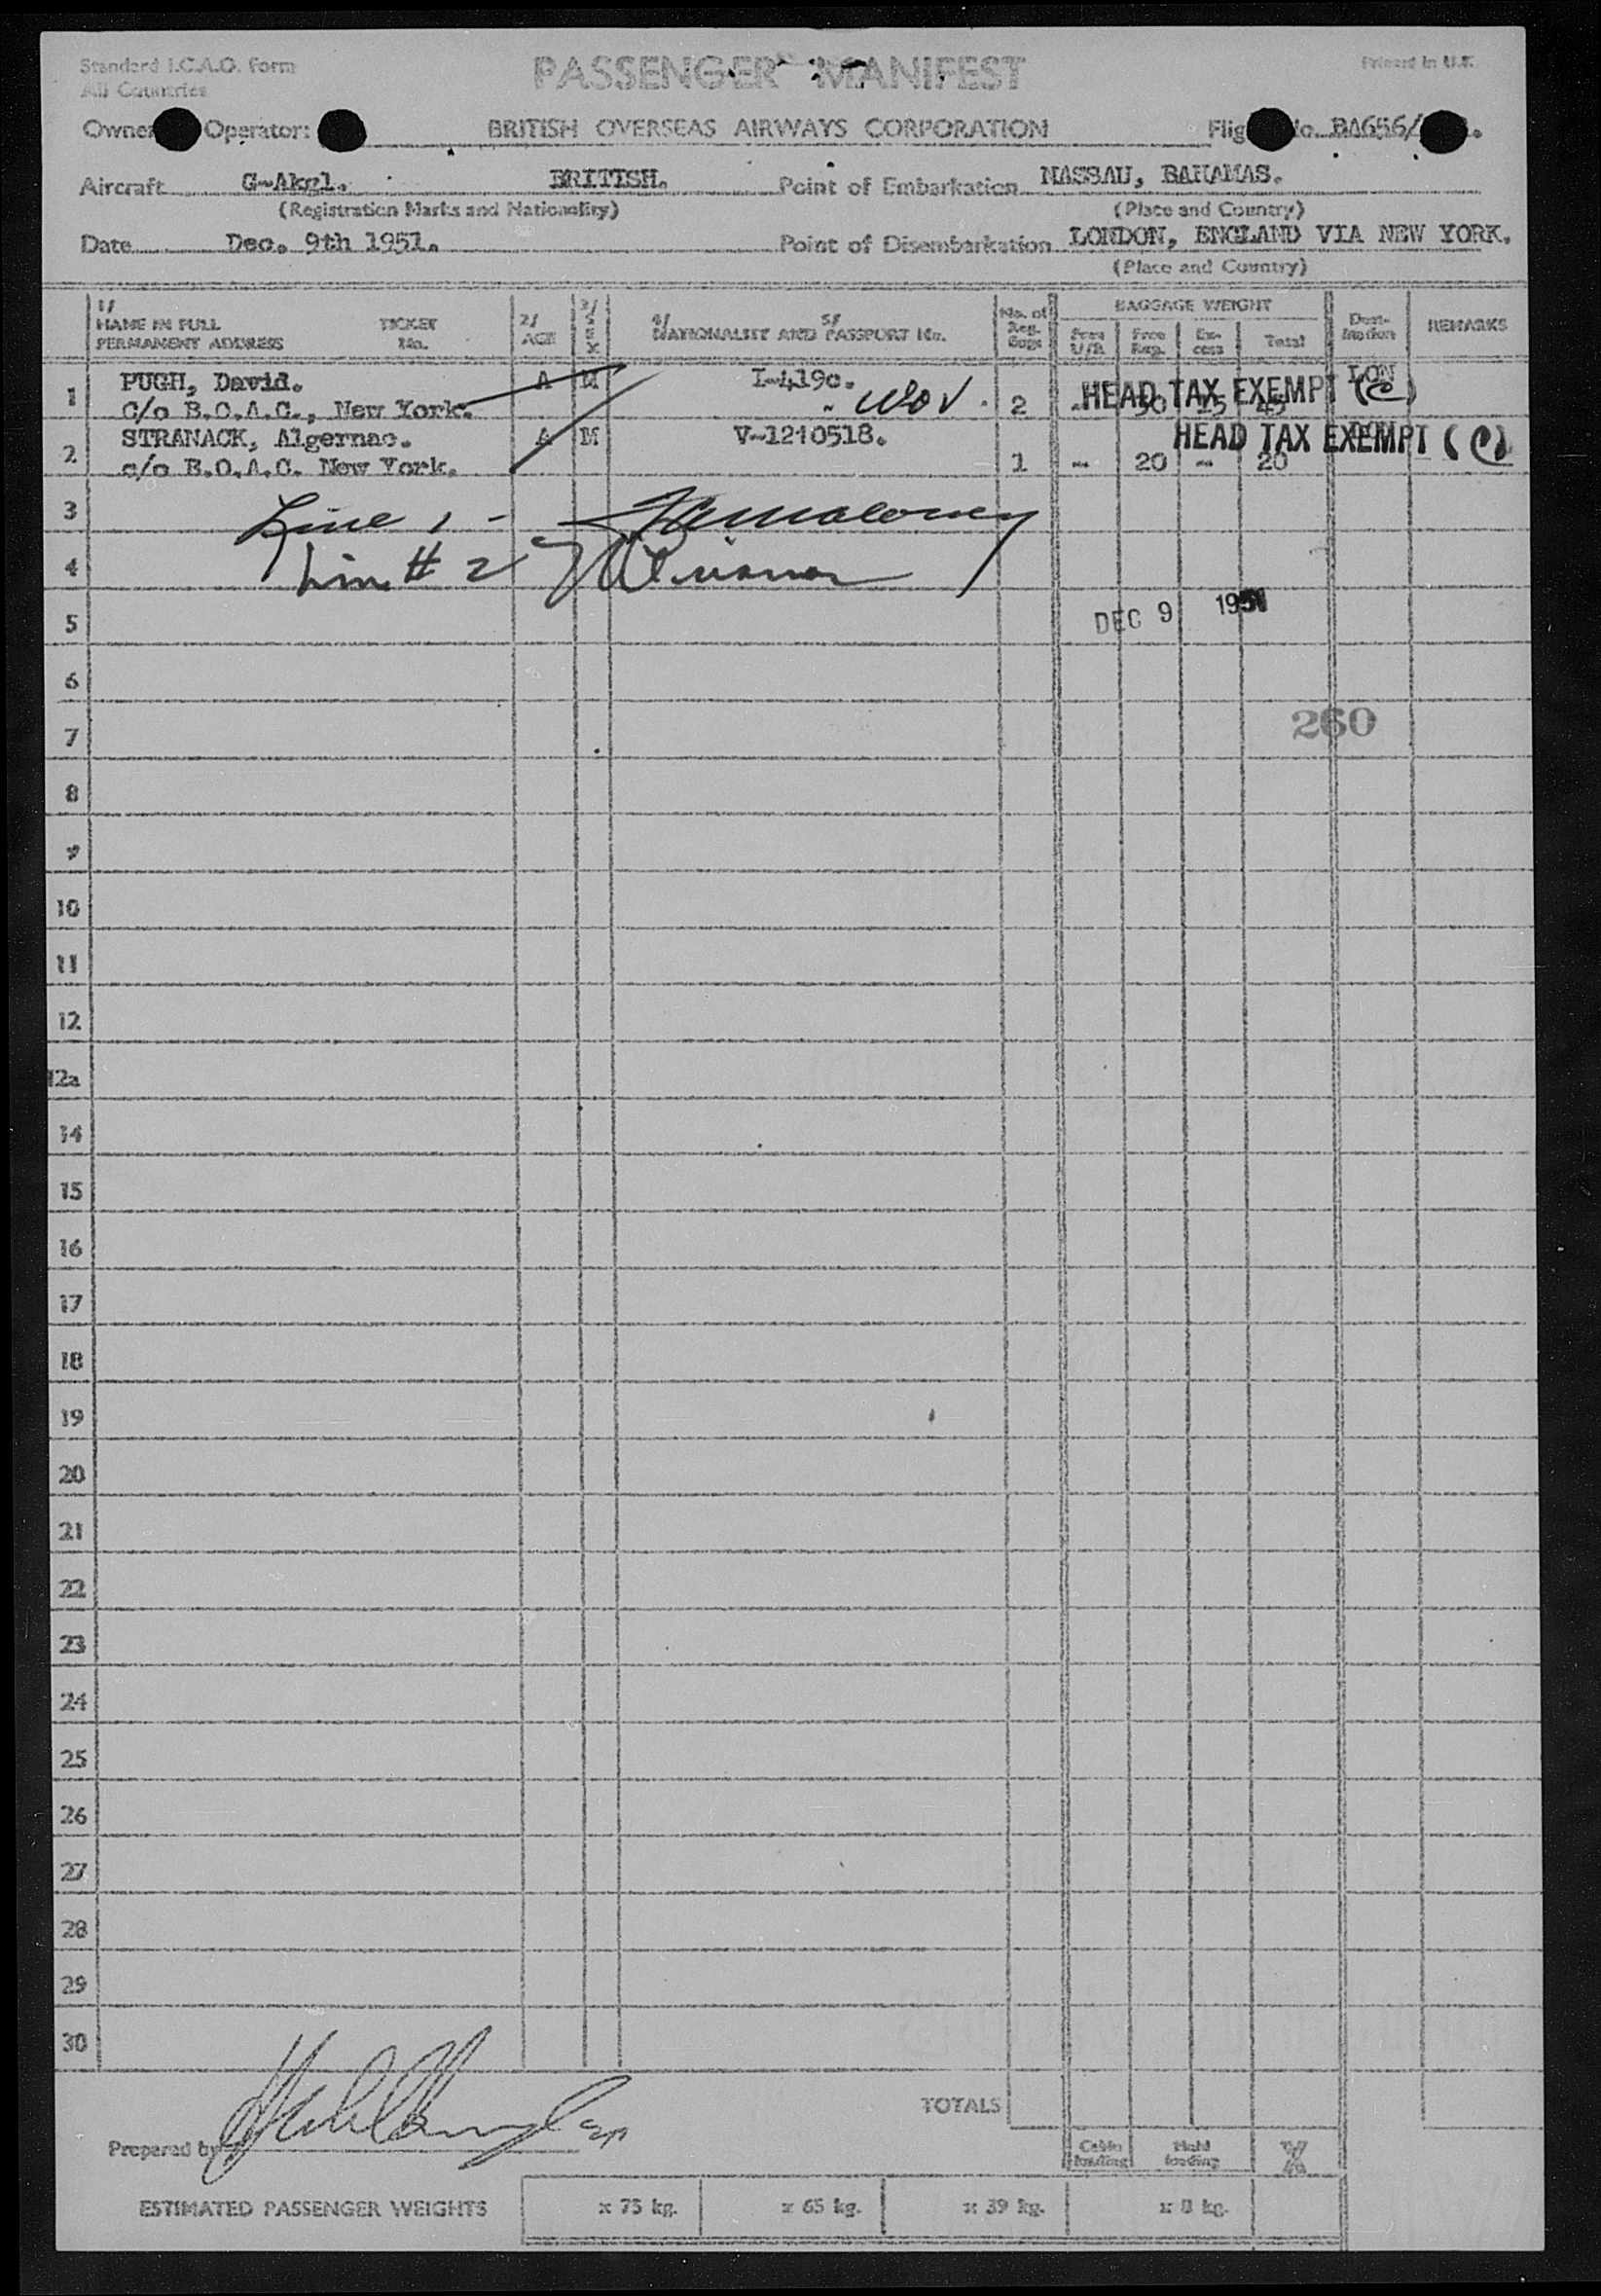 Standard I.C.A.O. Form
All Countries
PASSENGER MANIFEST
Printed in U.K.
Owner Operator: BRITISH OVERSEAS AIRWAYS CORPORATION Flig No. BA656/
Aircraft G-Akgl. BRITISH. Point of Embarkation NASSAU, BAHAMAS.
(Registration Marks and Nationality) (Place and Country)
Date Dec. 9th 1951. Point of Disembarkation LONDON, ENGLAND VIA NEW YORK.
(Place and Country)
1/ NAME IN FULL PERMANENT ADDRESS TICKET No. 2/ AGE 3/ SEX 4/ 5/ NATIONALITY AND PASSPORT No. No. of Reg. Bags BAGGAGE WEIGHT Free U/R Free Reg. Ex-cess Total Dest-ination REMARKS
1 PUGH, David. A M I-419c. LON
C/o B.O.A.C., New York. 2 HEAD TAX EXEMPT (C)
2 STRANACK, Algernac. A M V-1210518. HEAD TAX EXEMPT (C)
c/o B.O.A.C. New York. 1 - 20 - 20
3 Line 1 -
4 Line # 2
5 DEC 9 1951
6
7 260
8
9
10
11
12
12a
14
15
16
17
18
19
20
21
22
23
24
25
26
27
28
29
30
TOTALS
Prepared by
Cabin loading Hold loading
ESTIMATED PASSENGER WEIGHTS x 75 kg. x 65 kg. x 39 kg. x 8 kg.